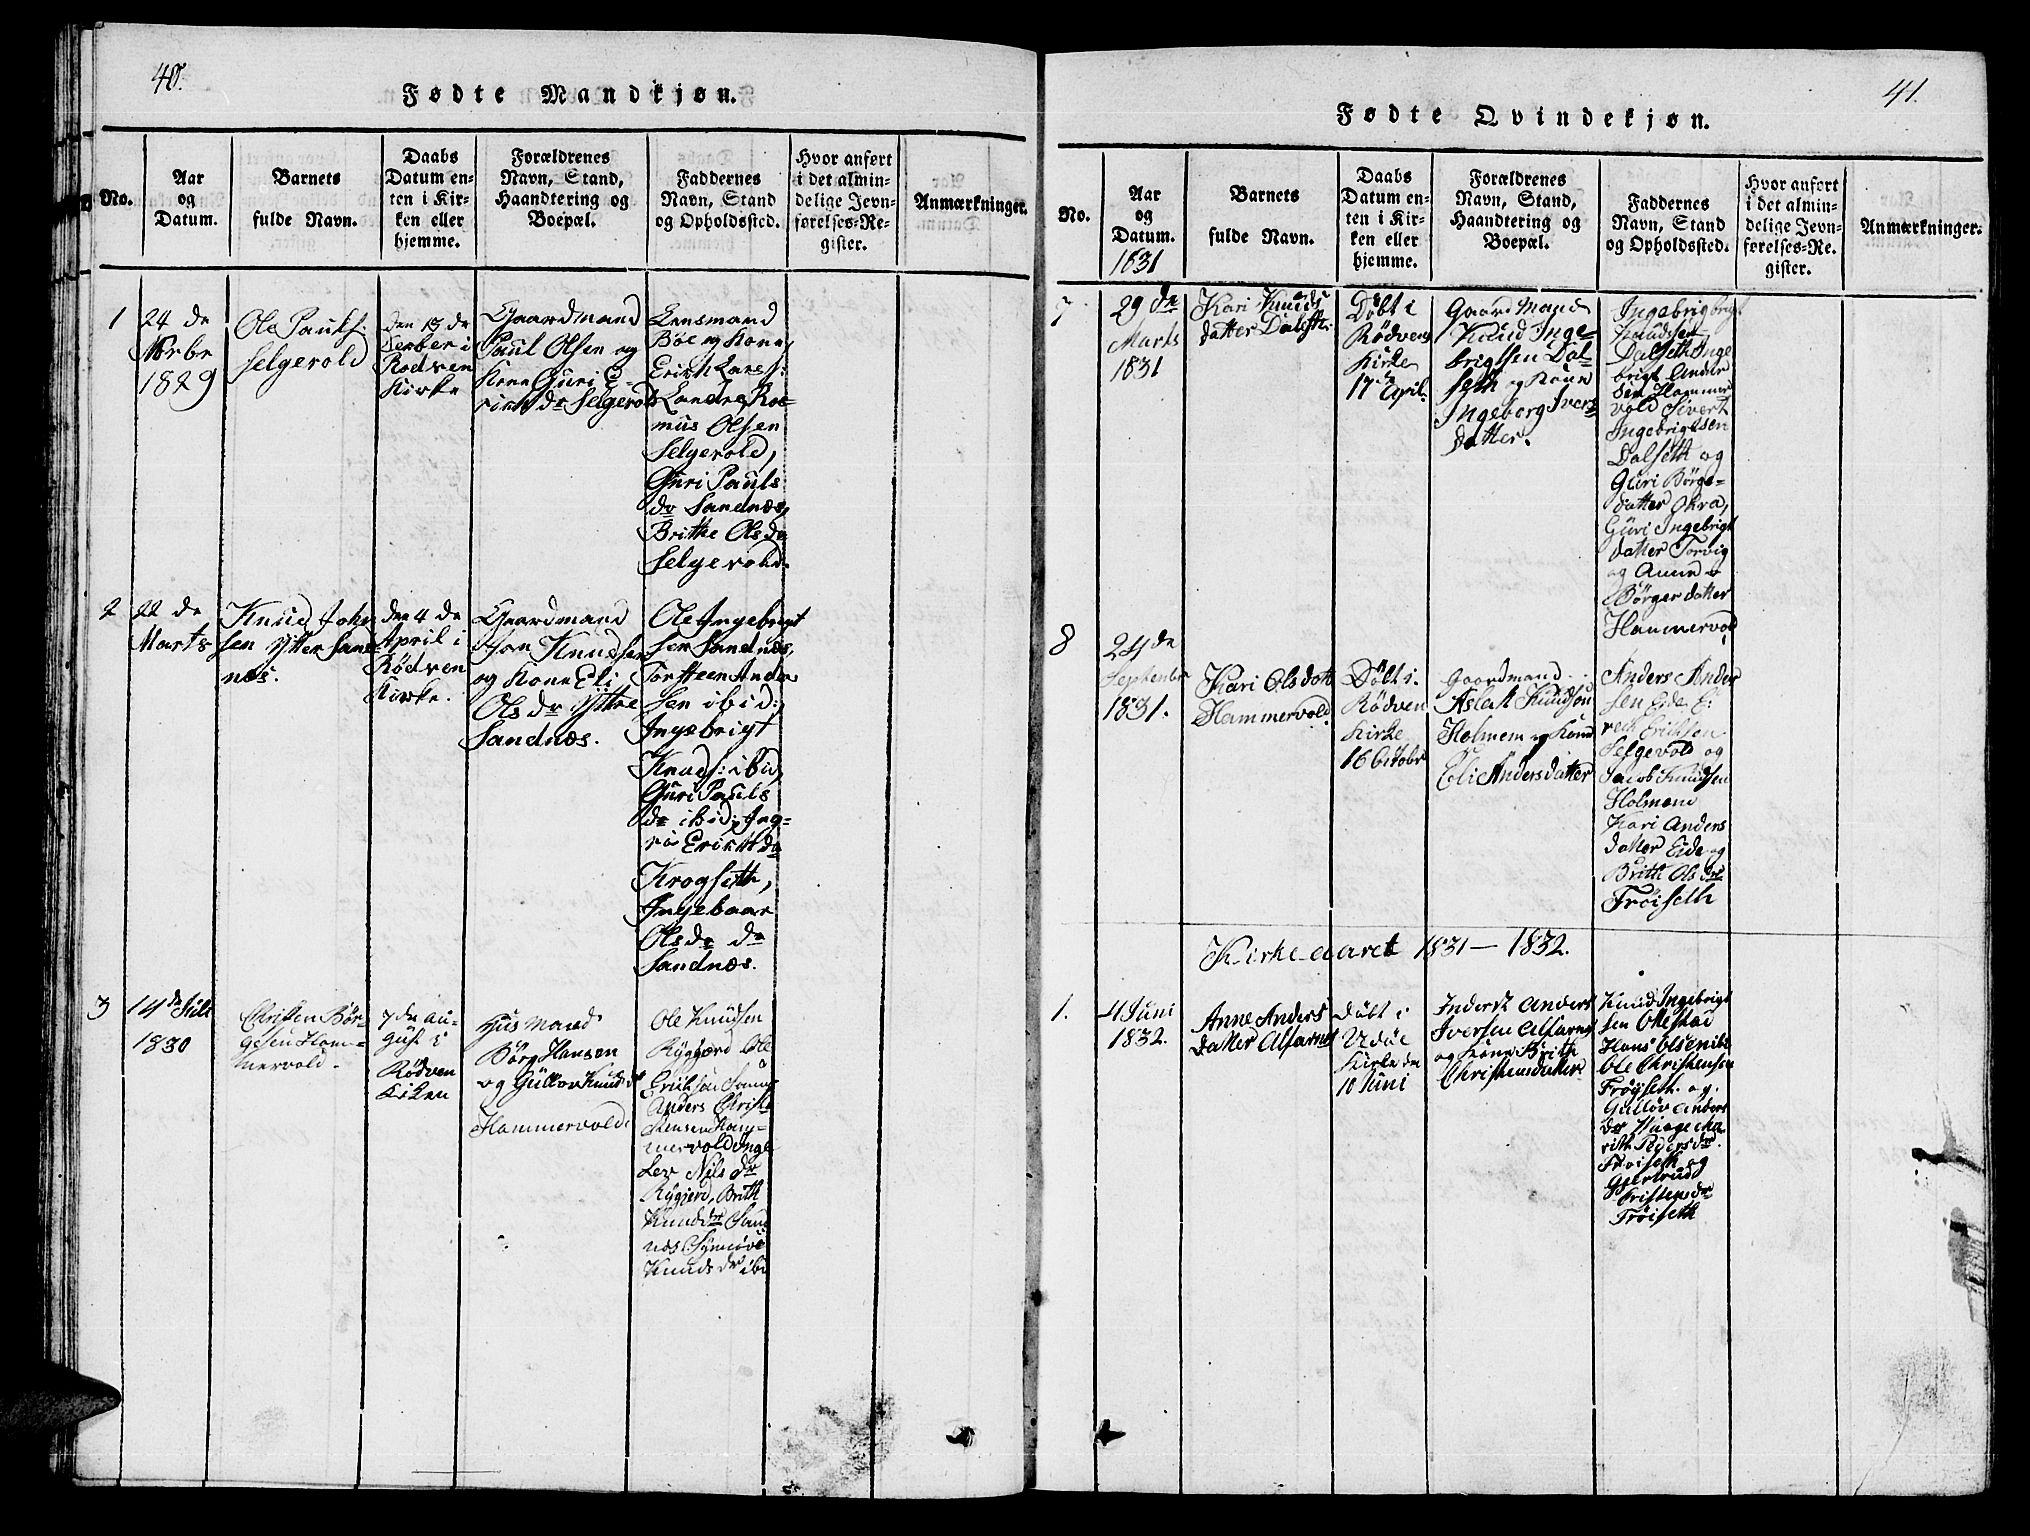 40.
Fødte Mandkjøn.
No.
Aar
og
Datum.
Barnets
fulde Navn.
Daabs
Datum en-
ten i Kir-
ken eller
hjemme.
Forældrenes
Navn, Stand,
Haandtering og
Boepæl.
Faddernes
Navn, Stand
og Opholdssted.
Hvor anført
i det almin-
delige Jevn-
førelses-Re-
gister.
Anmærkninger.
1
24 de
Novbr
1829
Ole Pauls.
Selgevold
den 13 de
Decber i
Rødven
Kirke
Gaardmand
Paul Olsen og
Kone Guri E-
riks dr Selgevold
Lensmand
Bøe og Kone,
Erich Lars:
Landre, Ras-
mus Olsen
Selgevold,
Guri Pauls
dr Sandnæs,
Britte Ols dr
Selgevold.
2
22 de
Marts
Knud John
sen Ytter Sand-
næs.
den 4 de
April i
Rødven
Kirke.
Gaardmand
Jon Knudsen
og Kone Eli
Ols dr Yttre
Sandnæs.
Ole Ingebrigt
sen Sandnæs,
Torsteen Anders
sen ibid:
Ingebrigt
Knuds: ibid,
Guri Pauls
dr ibid; Ing-
ri Erikk dr
Krogseth,
Ingebaar
Ols dr
Sandnæs.
3
14 de Juli
1830
Christen Bør-
gesen Ham-
mervold.
7 de Au-
gust i
Rødven
Kirken
Husmand
Børg Hansen
og Gulløv Knuds dr
Hammervold
Ole Knudsen
Ryggjerd Ole
Erichsen
Anders Christ-
stensen Ham-
mervold Inge
Lev Nils dr
Rygjerd, Brith
Knuds dr Sand
næs Synnøve
Knuds dr ibid
41.
Fødte Qvindekjøn.
No.
Aar
og
Datum.
1831
Barnets
fulde Navn.
Daabs
Datum en-
ten i Kir-
ken eller
hjemme.
Forældrenes
Navn, Stand,
Haandtering og
Boepæl.
Faddernes
Navn, Stand
og Opholdssted.
Hvor anført
i det almin-
delige Jevn-
førelses-Re-
gister.
Anmærkninger.
7
29 de
Marts
1831
Kari Knuds
datter Dalseth
Døbt i
Rødven
Kirke
17 April
Gaard Mand
Knud Inge-
brigtsen Dal-
seth og Kone
Ingeborg Ivers
datter.
Ingebrigt
Knudsen
Dalseth Inge
brigt Ander
sen Hammer
vold Sivert
Ingebrigtsen
Dalseth og
Guri Børge-
datter Okra,
Guri Ingebrigt
datter Torvig
og Anne
Børger datter
Hammervold
8
24 de
September
1831.
Kari Olsdatt
Hammervold
Døbt i
Rødven
Kirke
16 October
Gaardmand
Aslak Knudson
Holmem og Kone
Eli Andersdatter
Anders Ander
sen Eide E-
rech Erichsen
Selgevold og
Jacob Knudsen
Holmem
Kari Anders
datter Eide og
Brith Ols dr
Frøiseth
Kirkeaaret 1831 – 1832.
1.
4 Juni
1832.
Anne Anders
datter Alfarnes
Døbt i
Vedøe
Kirke den
10 Juni
Inderst Anders
Iversen Alfarnes
og Kone Brith
Christensdatter
Knud Ingebrigt
sen Ollestad
Hans Olsen ibid
Ole Christensen
Frøyseth og
Gulløv Anders
dr
Peders dr
Frøiseth og
Gjertrud
Cristens dr
Frøiseth